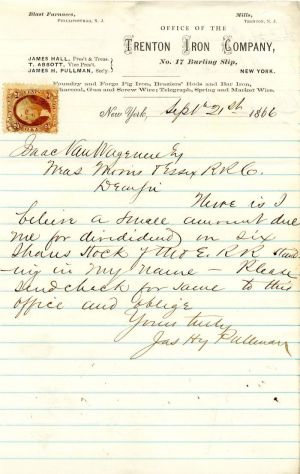 Blast Furnaces,
PHILLIPSBURG, N. J.
Mills,
TRENTON, N. J.
OFFICE OF THE
TRENTON IRON COMPANY,
JAMES HALL, Pres't & Treas.
T. ABBOTT, Vice Pres't.
JAMES H. PULLMAN, Sec'y.
No. 17 Burling Slip,
NEW YORK.
Foundry and Forge Pig Iron, Braziers' Rods and Bar Iron,
Charcoal, Gun and Screw Wire; Telegraph, Spring and Market Wire.
New York, Sept 21st 1866
Isaac Van Wagenen Esq
Treas Morris & Essex R.R. Co.
Dear Sir
There is I
believe a small amount due
me for dividend on six
shares stock of the E. R R stand
ing in my name - Please
send check for same to this
office and oblige
Yours truly
Jas Hy Pullman